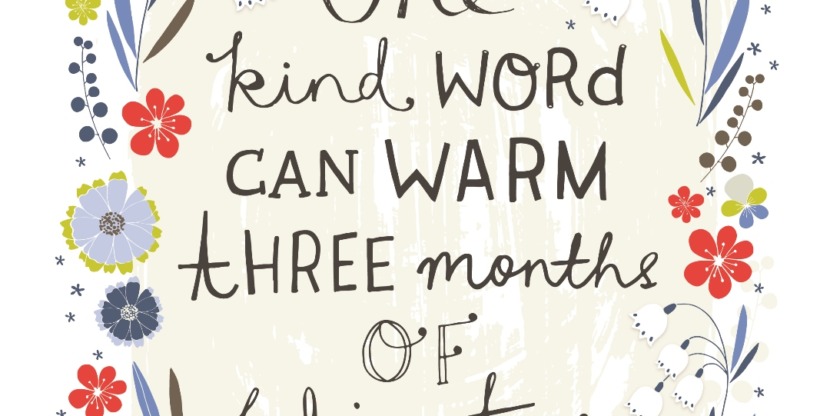 One
kind WORd
CAN WARM
tHREE months
OF